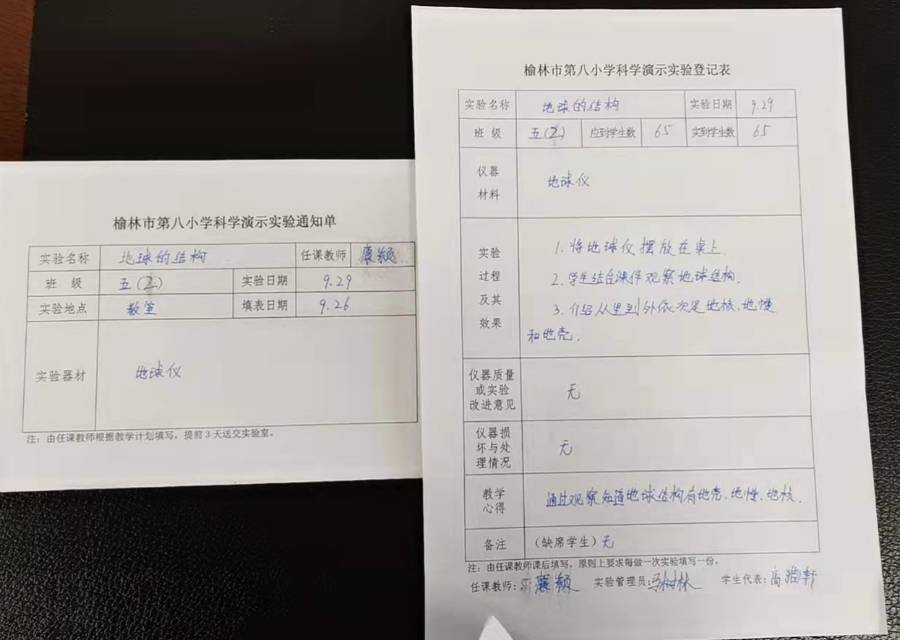 榆林市第八小学科学演示实验通知单
实验名称 地球的结构 任课教师 康颖
班 级 五(2) 实验日期 9.29
实验地点 教室 填表日期 9.26
实验器材 地球仪
注：由任课教师根据教学计划填写，提前3天送交实验室。
榆林市第八小学科学演示实验登记表
实验名称 地球的结构 实验日期 9.29
班 级 五(2) 应到学生数 65 实到学生数 65
仪器
材料
地球仪
实验
过程
及其
效果
1. 将地球仪摆放在桌上.
2. 学生结合课件观察地球结构.
3. 介绍从里到外依次是地核、地幔
和地壳.
仪器质量
或实验
改进意见
无
仪器损
坏与处
理情况
无
教学
心得
通过观察知道地球结构有地壳、地幔、地核.
备注 (缺席学生) 无
注：由任课教师课后填写，原则上要求每做一次实验填写一份。
任课教师: 康颖 实验管理员: 学生代表: